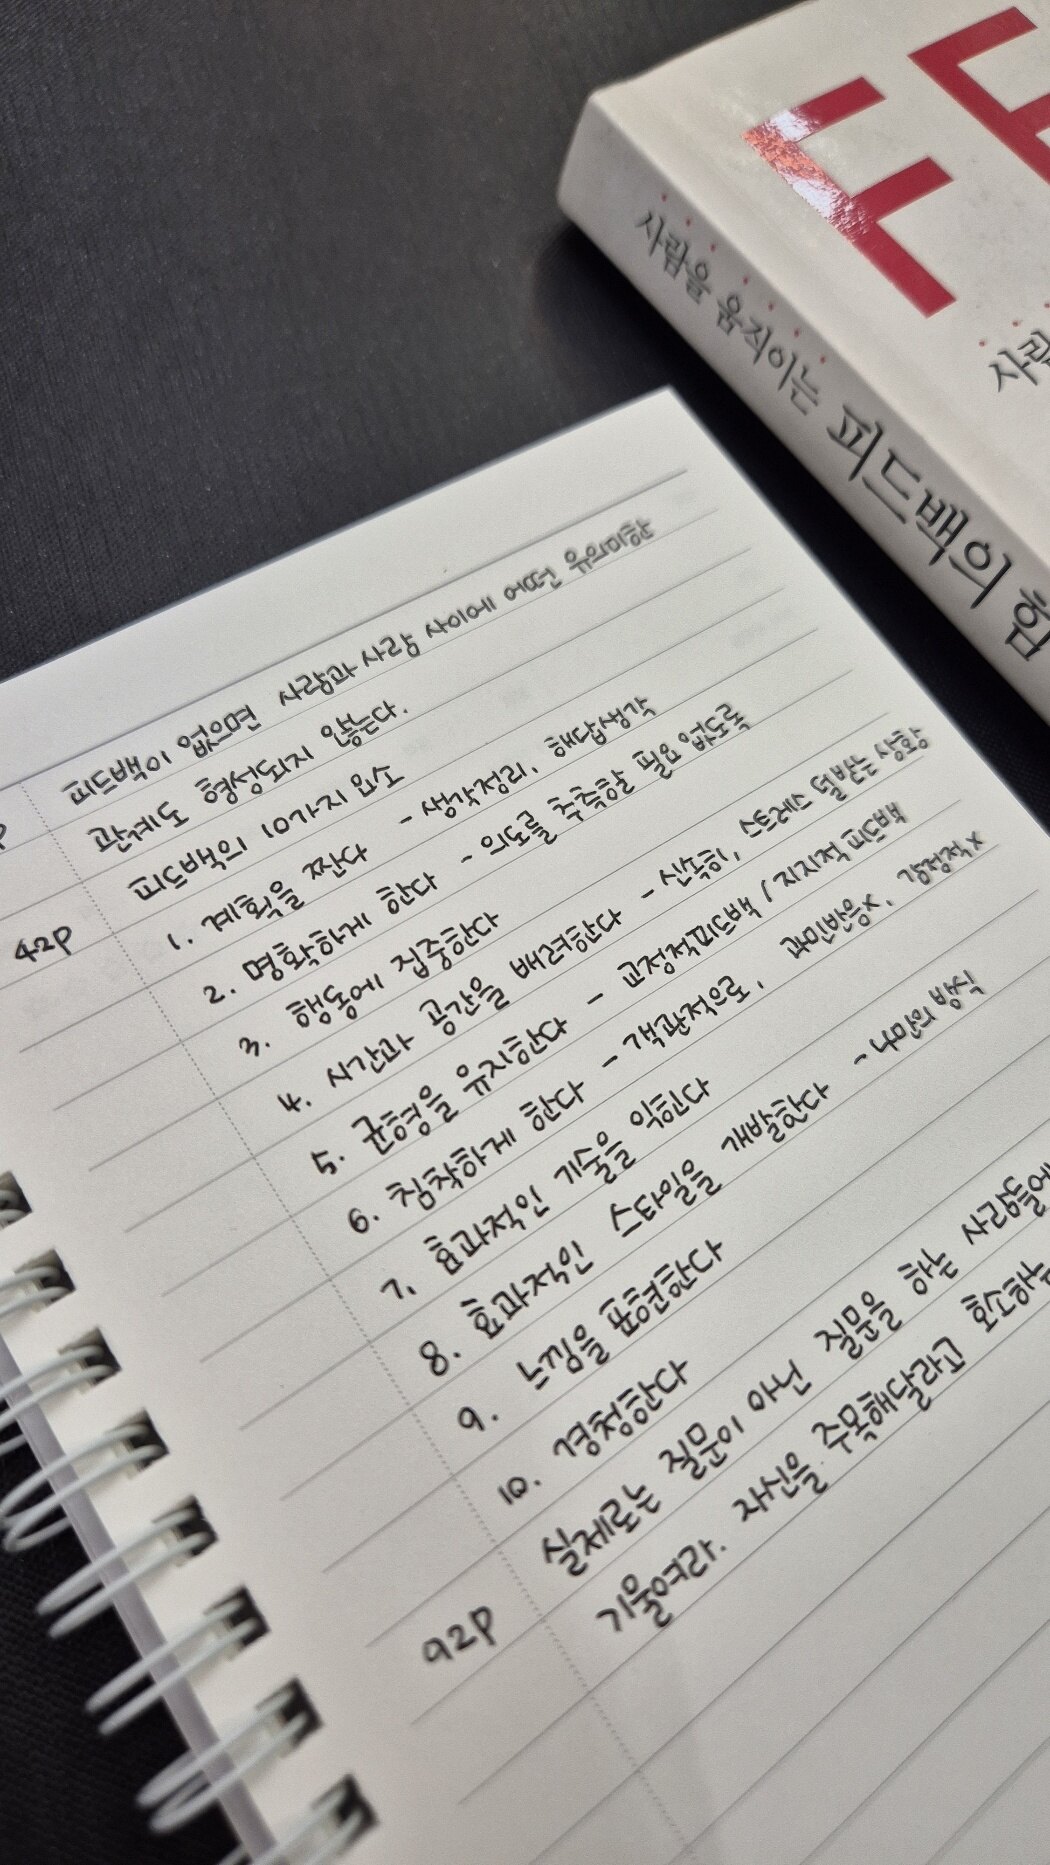 FE
사람을 움직이는 피드백의 힘
피드백이 없으면 사람과 사람 사이에 어떤 유의미한
관계도 형성되지 않는다.
42P 피드백의 10가지 요소
1. 계획을 짠다 - 생각정리, 해답생각
2. 명확하게 한다 - 의도를 추측할 필요 없도록
3. 행동에 집중한다
4. 시간과 공간을 배려한다 - 신속히, 스트레스 덜받는 상황
5. 균형을 유지한다 - 교정적피드백 / 지지적 피드백
6. 침착하게 한다 - 객관적으로, 과민반응x, 감정적x
7. 효과적인 기술을 익힌다
8. 효과적인 스타일을 개발한다 - 나만의 방식
9. 느낌을 표현한다
10. 경청한다
92P 실제로는 질문이 아닌 질문을 하는 사람들에
기울여라. 자신을 주목해달라고 호소하는